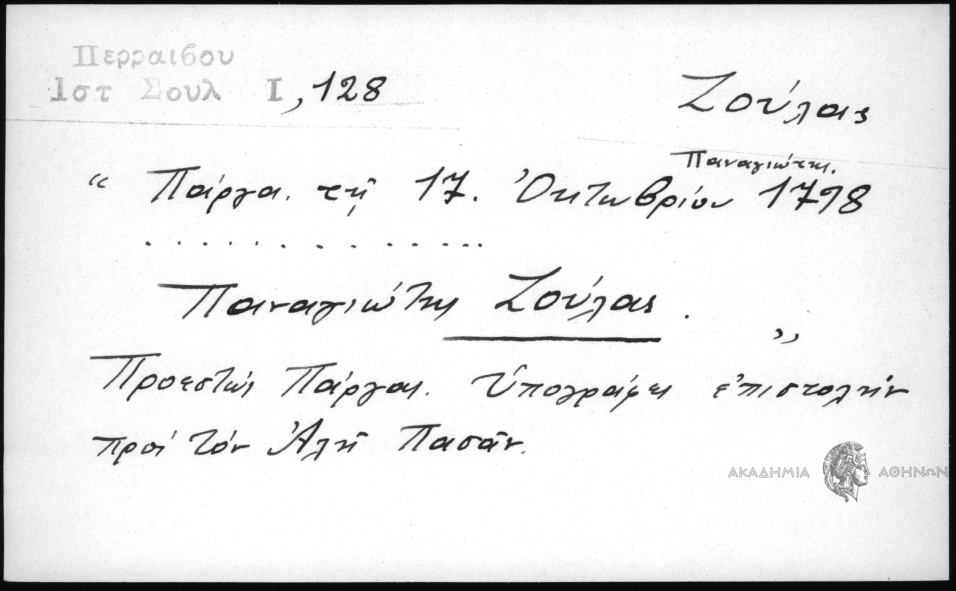 Περραιβου
Ιστ Σουλ Ι, 128
Ζούλας
Παναγιώτης.
“ Πάργα. τῇ 17. Ὀκτωβρίου 1798
. . . . . . . . . . . . . . .
Παναγιώτης Ζούλας. ”
Προεστὼς Πάργας. Ὑπογράφει ἐπιστολὴν
πρὸς τὸν Ἀλῆ Πασᾶν.
ΑΚΑΔΗΜΙΑ ΑΘΗΝΩΝ